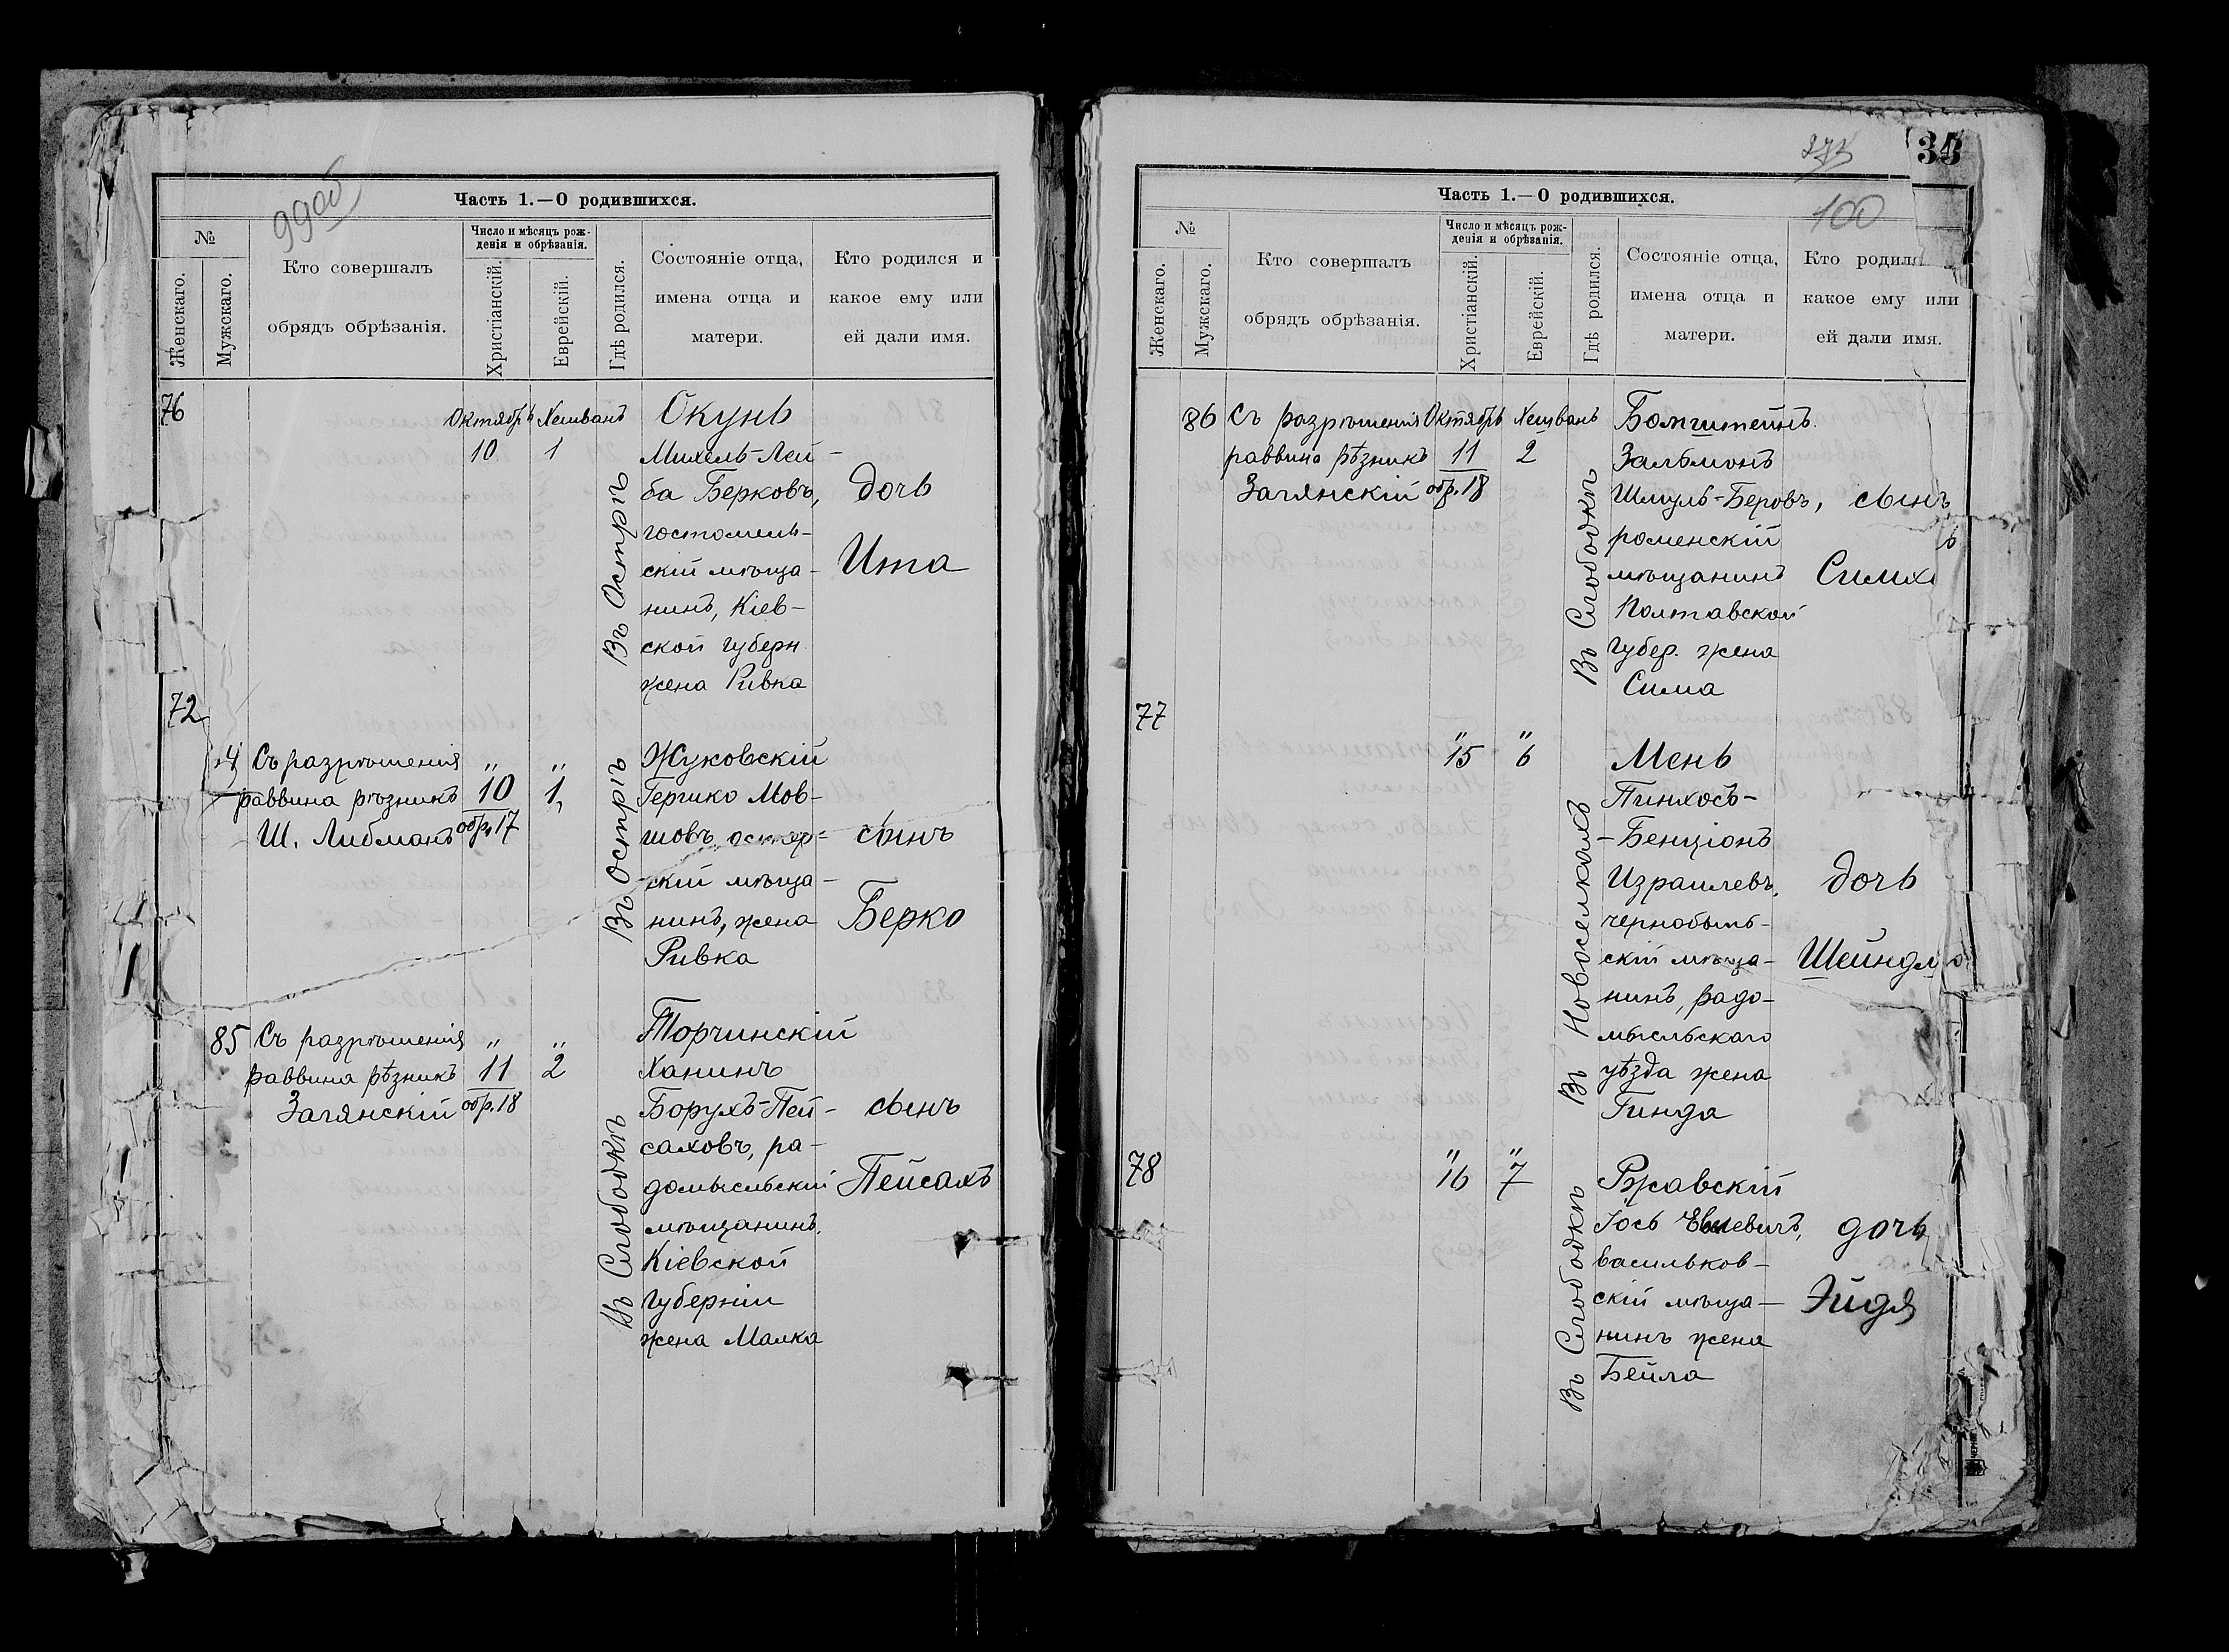 99об
Часть 1.—О родившихся.
№
Женскаго.
Мужскаго.
Кто совершалъ
обрядъ обрѣзанія.
Число и мѣсяцъ рож-
денія и обрѣзанія.
Христіанскій.
Еврейскій.
Гдѣ родился.
Состояніе отца,
имена отца и
матери.
Кто родился и
какое ему или
ей дали имя.
76
Октябрь Хешванъ
10 1
Въ Острѣ
Окунь
Михель-Лей-
ба Берковъ,
гостомель-
скій мѣща-
нинъ, Кіев-
ской губерн
жена Ривка
дочь
Ита
72
Съ разрѣшенія
раввина рѣзникъ
Ш. Либманъ
" "
10 1
обр. 17
Въ Острѣ
Жуковскій
Гершко Мов-
шовъ остер-
скій мѣща-
нинъ, жена
Ривка
сынъ
Берко
85
Съ разрѣшенія
раввина рѣзникъ
Загянскій
" "
11 2
обр. 18
Въ Слободкѣ
Торчинскій
Ханинъ
Борухъ-Пей-
саховъ, ра-
домысльскій
мѣщанинъ,
Кіевской
губерніи
жена Малка
сынъ
Пейсахъ
35
100
Часть 1.—О родившихся.
№
Женскаго.
Мужскаго.
Кто совершалъ
обрядъ обрѣзанія.
Число и мѣсяцъ рож-
денія и обрѣзанія.
Христіанскій.
Еврейскій.
Гдѣ родился.
Состояніе отца,
имена отца и
матери.
Кто родил
какое ему или
ей дали имя.
86
Съ разрѣшенія
раввина рѣзникъ
Загянскій
Октябрь Хешванъ
11 2
обр. 18
Въ Слободкѣ
Бомштейнъ
Зальмонъ
Шмуль-Беровъ,
роменскій
мѣщанинъ
Полтавской
губер. жена
Сима
сынъ
Симх
77
" "
15 6
Въ Новоселкахъ
Мень
Пинхосъ-
-Бенціонъ
Израилевъ,
чернобыль-
скій мѣща-
нинъ, радо-
мысльскаго
уѣзда жена
Гинда
дочь
Шейндл
78
" "
16 7
Въ Слободкѣ
Ржавскій
Іось
васильков-
скій мѣща-
нинъ жена
Бейла
дочь
Эйдя